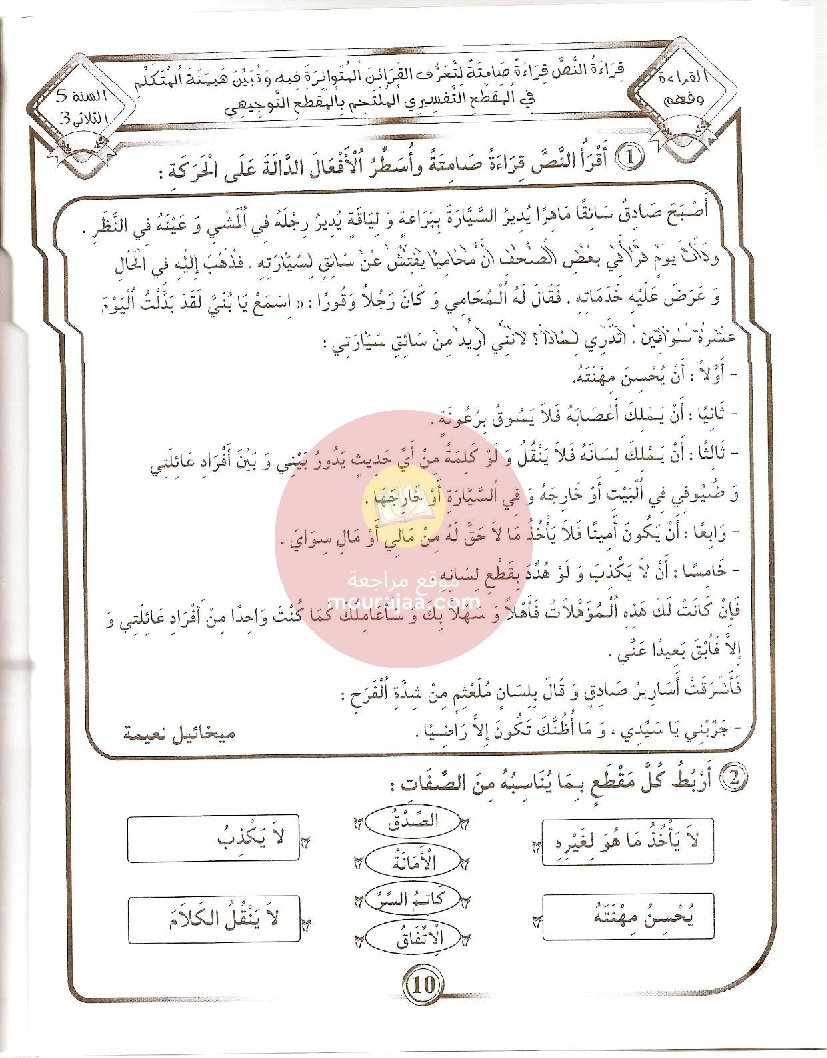 القراءة
وفهم
قراءة النّصّ قراءة صامتة لتعرّف القرائن المتواترة فيه وتبيّن هيمنة المتكلّم
في المقطع التّفسيري المُلتحم بالمقطع التّوجيهي
السنة 5
الثلاثي 3
① أَقْرَأُ النَّصَّ قِرَاءَةً صَامِتَةً وأُسَطِّرُ الْأَفْعَالَ الدَّالَةَ عَلَى الْحَرَكَةِ :
أَصْبَحَ صَادِقُ سَائِقًا مَاهِرًا يُدِيرُ السَّيَّارَةَ بِبَرَاعَةٍ وَ لِيَاقَةٍ يُدِيرُ رِجْلَهُ فِي الْمَشْيِ وَ عَيْنَهُ فِي النَّظَرِ .
وَذَاتَ يَوْمٍ قَرَأَ فِي بَعْضِ الصُّحُفِ أَنَّ مُحَامِيًا يُفَتِّشُ عَنْ سَائِقٍ لِسَيَّارَتِهِ . فَذَهَبَ إِلَيْهِ فِي الْحَالِ
وَ عَرَضَ عَلَيْهِ خَدَمَاتِهِ . فَقَالَ لَهُ الْمُحَامِي وَ كَانَ رَجُلاً وَقُورًا : « اِسْمَعْ يَا بُنَيَّ لَقَدْ بَذَلْتُ الْيَوْمَ
عَشَرَةَ سُوَّاقِينَ . أَتَدْرِي لِمَاذَا؟ لأَنَّنِي أُرِيدُ مِنْ سَائِقِ سَيَّارَتِي :
- أَوَّلاً : أَنْ يُحْسِنَ مِهْنَتَهُ.
- ثَانِيًا : أَنْ يَمْلِكَ أَعْصَابَهُ فَلاَ يَسُوقَ بِرُعُونَةٍ .
- ثَالِثًا : أَنْ يَمْلِكَ لِسَانَهُ فَلاَ يَنْقُلَ وَ لَوْ كَلِمَةً مِنْ أَيِّ حَدِيثٍ يَدُورُ بَيْنِي وَ بَيْنَ أَفْرَادِ عَائِلَتِي
وَ ضُيُوفِي فِي الْبَيْتِ أَوْ خَارِجَهُ وَ فِي السَّيَّارَةِ أَوْ خَارِجَهَا .
- رَابِعًا : أَنْ يَكُونَ أَمِينًا فَلاَ يَأْخُذَ مَا لاَ حَقَّ لَهُ مِنْ مَالِي أَوْ مَالِ سِوَايَ .
- خَامِسًا : أَنْ لاَ يَكْذِبَ وَ لَوْ هُدِّدَ بِقَطْعِ لِسَانِهِ
موقع مراجعة
mourajaa.com
فَإِنْ كَانَتْ لَكَ هَذِهِ الْمُؤَهِّلاَتُ فَأَهْلاً وَ سَهْلاً بِكَ وَ سَأُعَامِلُكَ كَمَا كُنْتَ وَاحِدًا مِنْ أَفْرَادِ عَائِلَتِي وَ
إِلاَّ فَابْقَ بَعِيدًا عَنِّي .
فَأَشْرَقَتْ أَسَارِيرُ صَادِقٍ وَ قَالَ بِلِسَانٍ مُلَعْثِمٍ مِنْ شِدَّةِ الْفَرَحِ :
- جَرِّبْنِي يَا سَيِّدِي ، وَ مَا أَظُنُّكَ تَكُونُ إِلاَّ رَاضِيًا .
ميخائيل نعيمة
② أَرْبُطُ كُلَّ مَقْطَعٍ بِمَا يُنَاسِبُهُ مِنَ الصِّفَاتِ :
لاَ يَأْخُذُ مَا هُوَ لِغَيْرِهِ
الصِّدْقُ
لاَ يَكْذِبُ
الْأَمَانَةُ
يُحْسِنُ مِهْنَتَهُ
كَاتِمُ السِّرِّ
لاَ يَنْقُلُ الكَلاَمَ
الْاِتِّفَاقُ
10